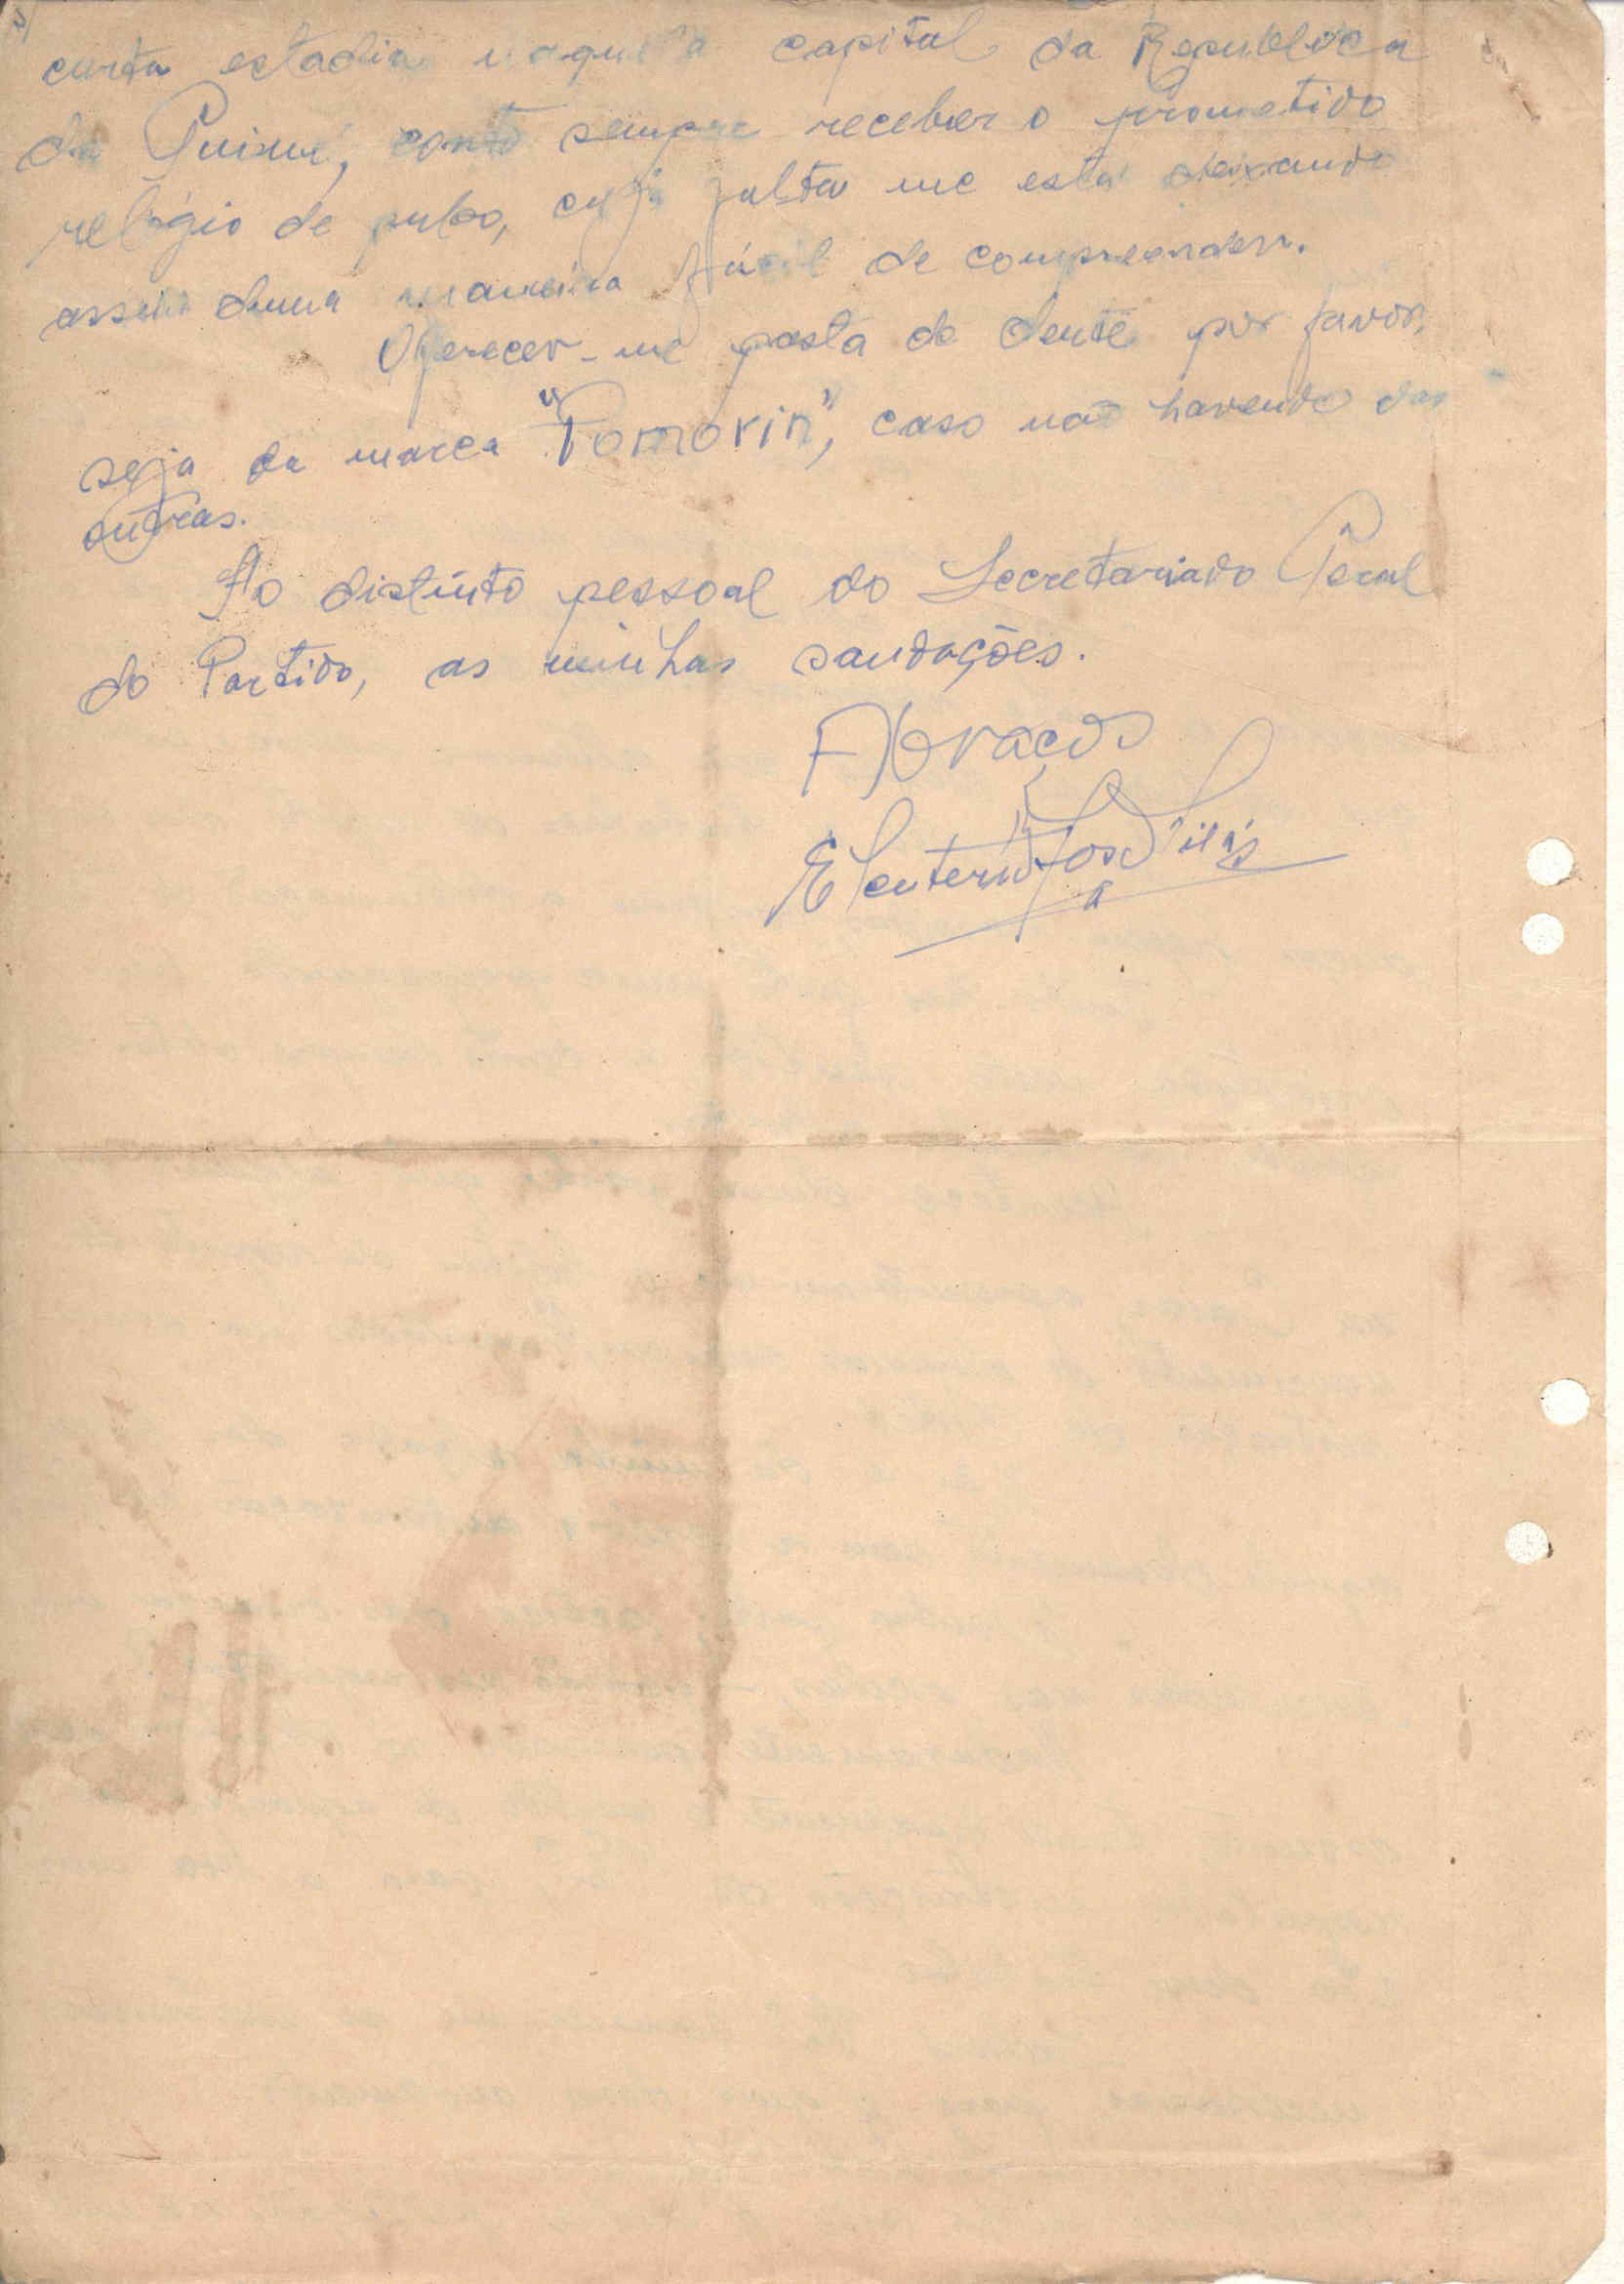 curta estadia naquela capital da Republica
da Guiné, conto sempre receber o prometido
relógio de pulso, cuja falta me está deixando
assim duma maneira fácil de compreender.
Oferecer-me pasta de dente por favor,
seja da marca "Pomorin", caso não havendo das
outras.
Ao distinto pessoal do Secretariado Geral
do Partido, as minhas saudações.
Abraços